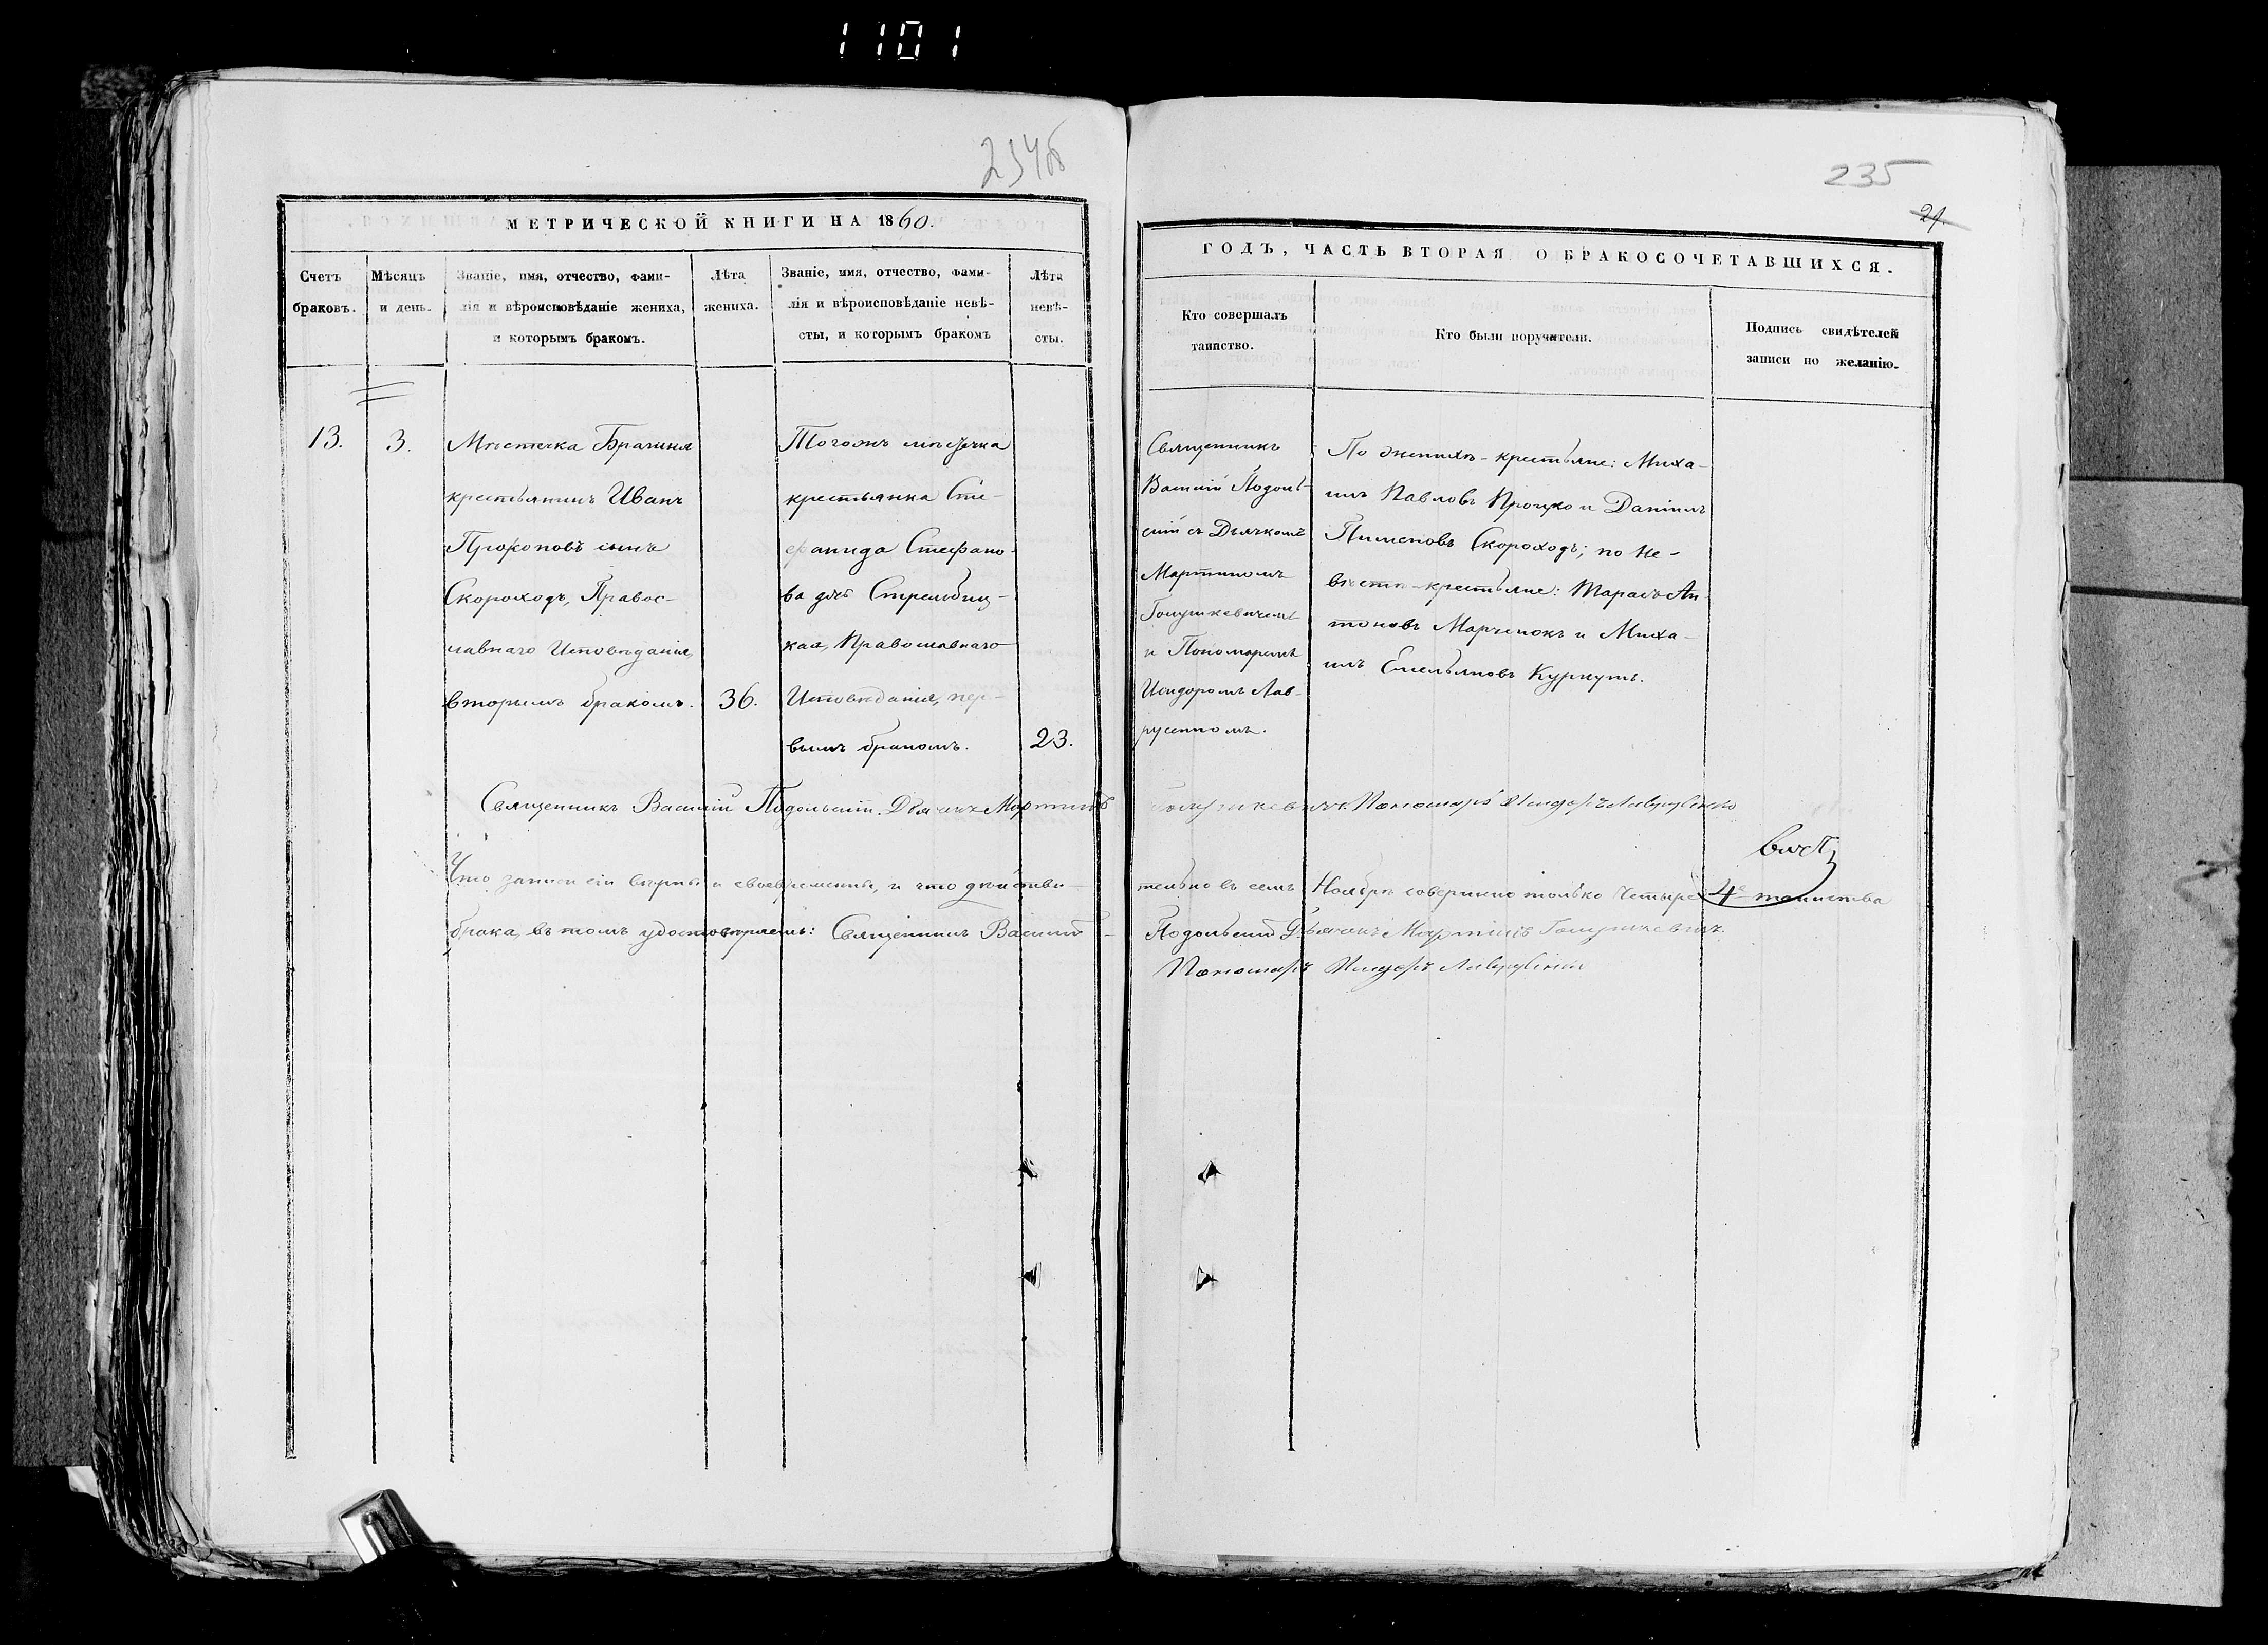 1101
234об
МЕТРИЧЕСКОЙ КНИГИ НА 1860.
Счетъ браковъ.
Мѣсяцъ и день.
Званіе, имя, отчество, фами-
лія и вѣроисповѣданіе жениха,
и которымъ бракомъ.
Лѣта жениха.
Званіе, имя, отчество, фами-
лія и вѣроисповѣданіе невѣ-
сты, и которымъ бракомъ
Лѣта невѣ-
сты.
13.
3.
Мѣстечка Брагиня
крестьянинъ Иванъ
Прокоповъ сынъ
Скороходъ, Правос-
лавнаго Исповѣданія,
вторымъ бракомъ.
36.
Тогожъ мѣстечка
крестьянка Сте-
фанида Стефано-
ва дочь Стрельбиц-
кая, Православнаго
Исповѣданія, пер-
вымъ бракомъ.
23.
Священникъ Василій Подольскій. Дьячекъ Мартинъ
Что записи сіи вѣрны и своевременны, и что дѣйстви-
брака, въ томъ удостовѣряемъ: Священникъ Василій
235
21.
ГОДЪ, ЧАСТЬ ВТОРАЯ О БРАКОСОЧЕТАВШИХСЯ.
Кто совершалъ
таинство.
Кто были поручители.
Подпись свидѣтелей
записи по желанію.
Священникъ
Василій Подоль-
скій съ Дьячкомъ
Мартиномъ
Голушкевичемъ
и Пономаремъ
Исидоромъ Лав-
русенкомъ.
По женихѣ - крестьяне: Миха-
илъ Павловъ Процко и Даніилъ
Пименовъ Скороходъ; по не-
вѣстѣ - крестьяне: Тарасъ Ан-
тоновъ Марченокъ и Миха-
илъ Емельяновъ Куркутъ.
Голушкевичъ. Пономарь Исидоръ Лаврусенко
тельно въ семъ Ноябрѣ совершено только четыре 4е таинства
Подольскій Дьячекъ Мартинъ Голушкевичъ.
Пономарь Исидоръ Лаврусенко